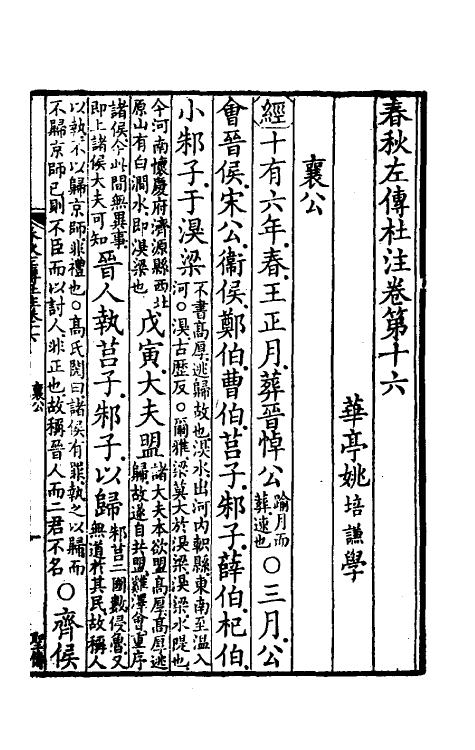 春秋左傳杜注卷第十六
華亭姚培謙學
襄公
經十有六年春王正月葬晉悼公踰月而葬速也○三月公
會晉侯宋公衞侯鄭伯曹伯莒子邾子薛伯杞伯
小邾子于湨梁不書高厚逃歸故也湨水出河內軹縣東南至溫入河○湨古歷反○爾雅梁莫大於湨梁湨梁水隄也
今河南懷慶府濟源縣西北原山有白澗水即湨梁也戊寅大夫盟諸大夫本欲盟高厚高厚逃歸故遂自共盟雞澤會重序
諸侯今此間無異事即上諸侯大夫可知晉人執莒子邾子以歸邾莒二國數侵魯又無道於其民故稱人
以執不以歸京師非禮也○高氏閌曰諸侯有罪執之以歸而不歸京師已則不臣而以討人非正也故稱晉人而二君不名○齊侯
襄公